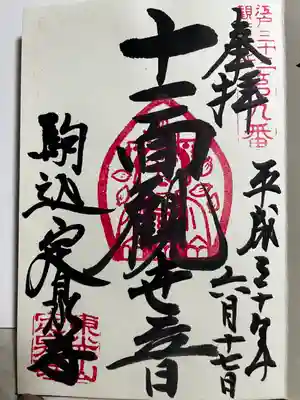 江戸三十三
観音第九番
奉拝
平成三十年
六月十七日
十一面観世音
駒込定泉寺
東光山
定泉寺